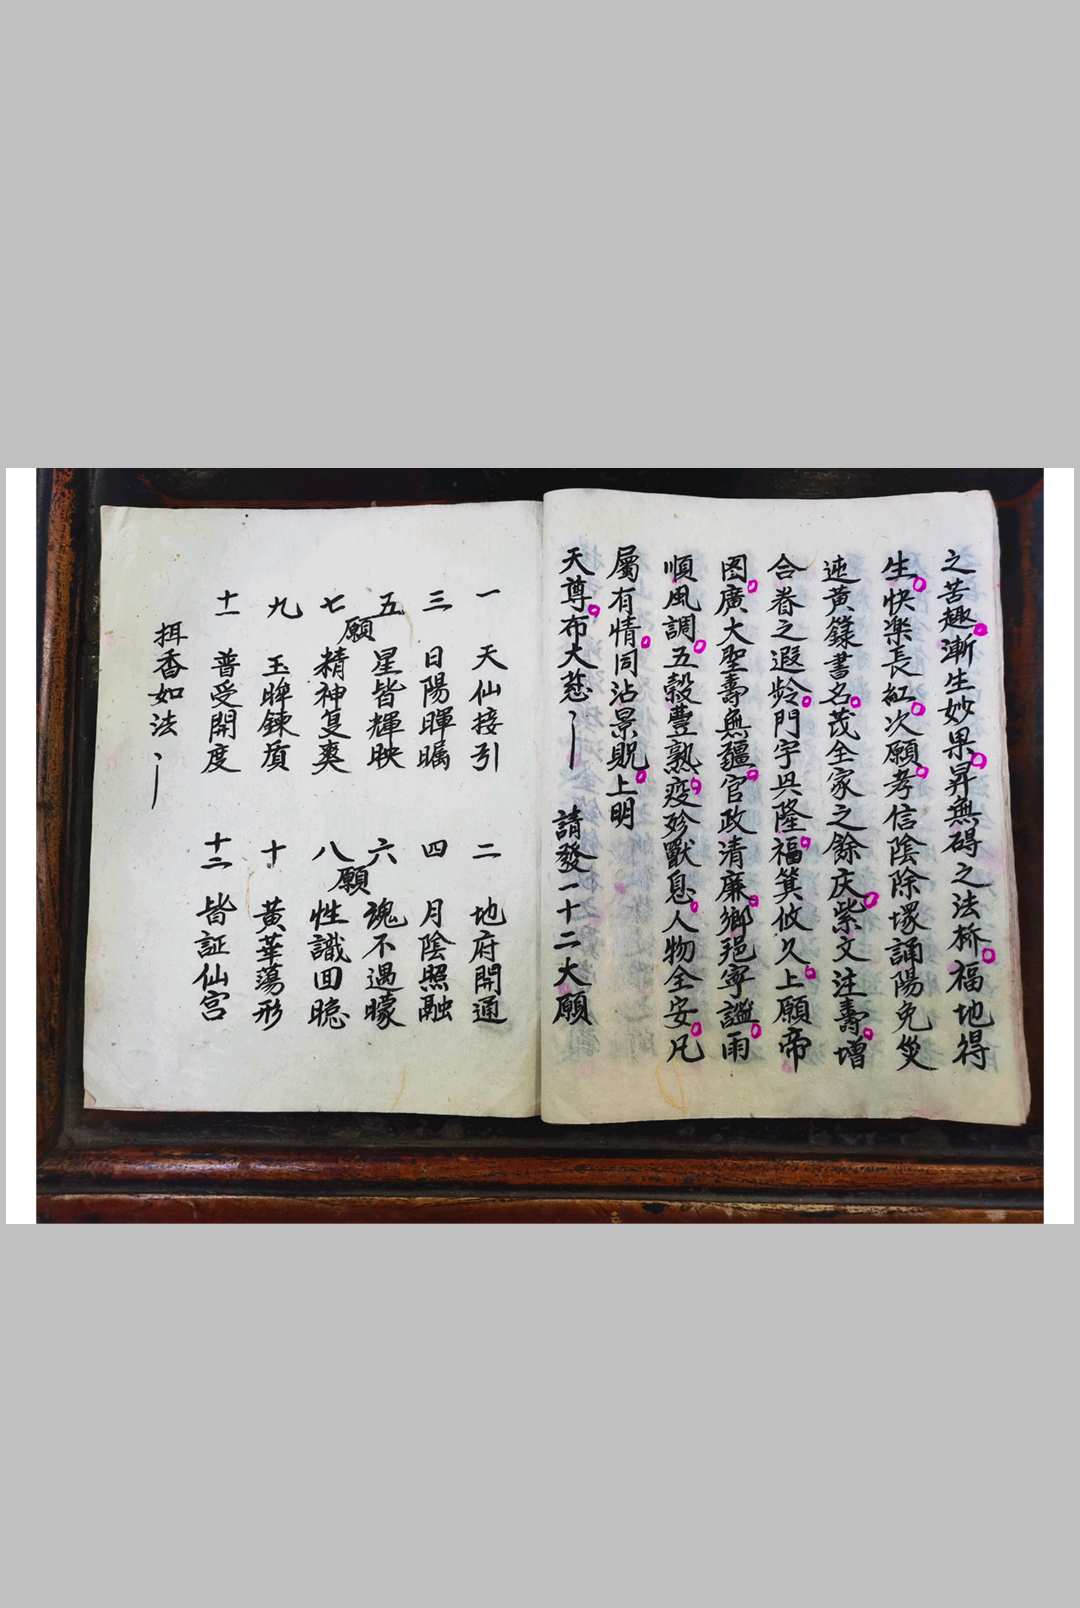 之苦趣漸生妙果昇無碍之法橋福地得
生快楽長紅次願孝信陰除塚誦陽免災
速黄籙書名茂全家之餘庆紫文注壽增
合眷之遐齡門字興隆福箕攸久上願帝
图廣大聖壽無疆官政清廉鄉邑寕謐雨
順風調五穀豊熟疫殄獸息人物全安凡
屬有情同沾景貺上明
天尊布大慈 請發一十二大願
一 天仙接引 二 地府開通
三 日陽暉矚 四 月陰照融
五 星皆輝映 六 魂不遇曚
願 願
七 精神复爽 八 性識回聰
九 玉眸鍊質 十 黃華蕩形
十一 普受開度 十二 皆証仙宫
捛香如法